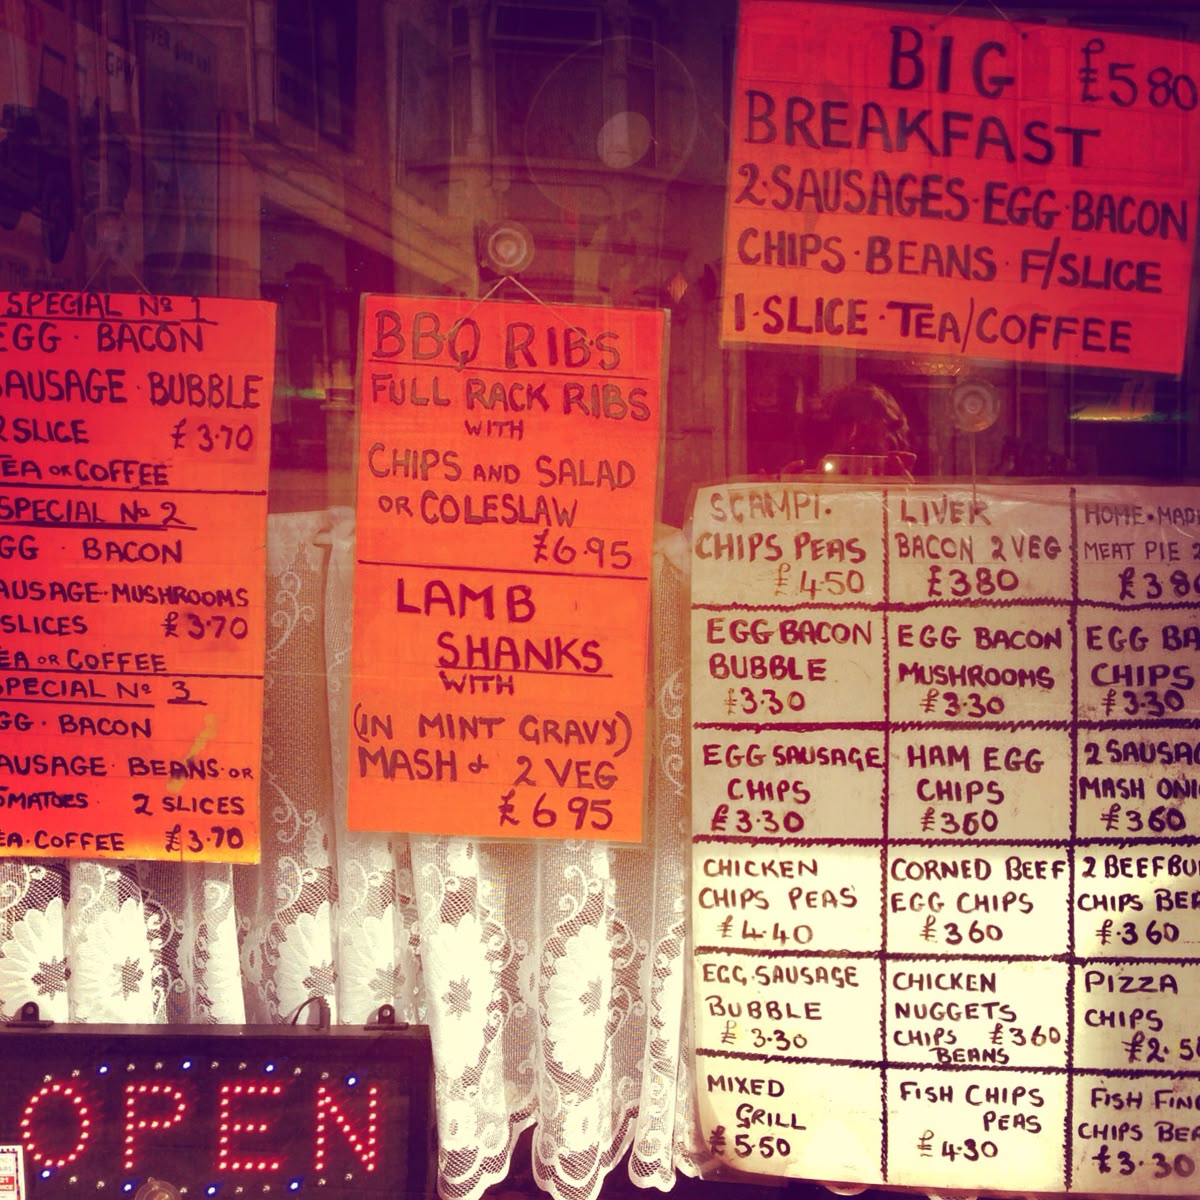 SPECIAL Nº 1
EGG · BACON
SAUSAGE · BUBBLE
2 SLICE £3.70
TEA OR COFFEE
SPECIAL Nº 2
EGG · BACON
SAUSAGE · MUSHROOMS
SLICES £3.70
TEA OR COFFEE
SPECIAL Nº 3
EGG · BACON
SAUSAGE · BEANS · OR
TOMATOES 2 SLICES
TEA · COFFEE £3.70
BBQ RIBS
FULL RACK RIBS
WITH
CHIPS AND SALAD
OR COLESLAW
£6.95
LAMB
SHANKS
WITH
(IN MINT GRAVY)
MASH & 2 VEG
£6.95
BIG £5 80
BREAKFAST
2·SAUSAGES·EGG·BACON
CHIPS·BEANS·F/SLICE
1·SLICE·TEA/COFFEE
SCAMPI.
CHIPS PEAS
£4.50
LIVER
BACON 2 VEG
£3 80
HOME·MAD
MEAT PIE 2
£3 8
EGG BACON
BUBBLE
£3.30
EGG BACON
MUSHROOMS
£3.30
EGG BA
CHIPS
£3.30
EGG SAUSAGE
CHIPS
£3.30
HAM EGG
CHIPS
£3 60
2 SAUSAG
MASH ONI
£3 60
CHICKEN
CHIPS PEAS
£4.40
CORNED BEEF
EGG CHIPS
£3 60
2 BEEFBU
CHIPS BEA
£·3 60
EGG·SAUSAGE
BUBBLE
£3.30
CHICKEN
NUGGETS
CHIPS £3 60
BEANS
PIZZA
CHIPS
£2.5
MIXED
GRILL
£5.50
FISH CHIPS
PEAS
£4.30
FISH FING
CHIPS BEA
£3.30
OPEN